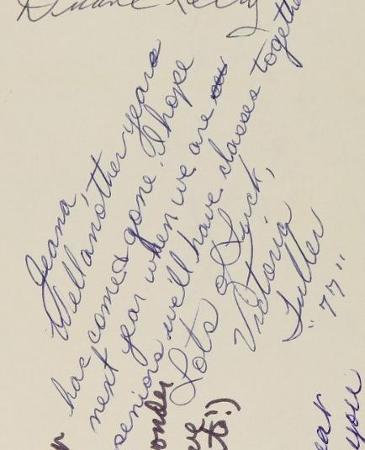 Duane Kelly
Jeana,
Well another years
has come & gone. I hope
next year when we are
seniors we'll have classes together
Lots of Luck,
Victoria
Fuller
"77"
onder
to!)
ear
you